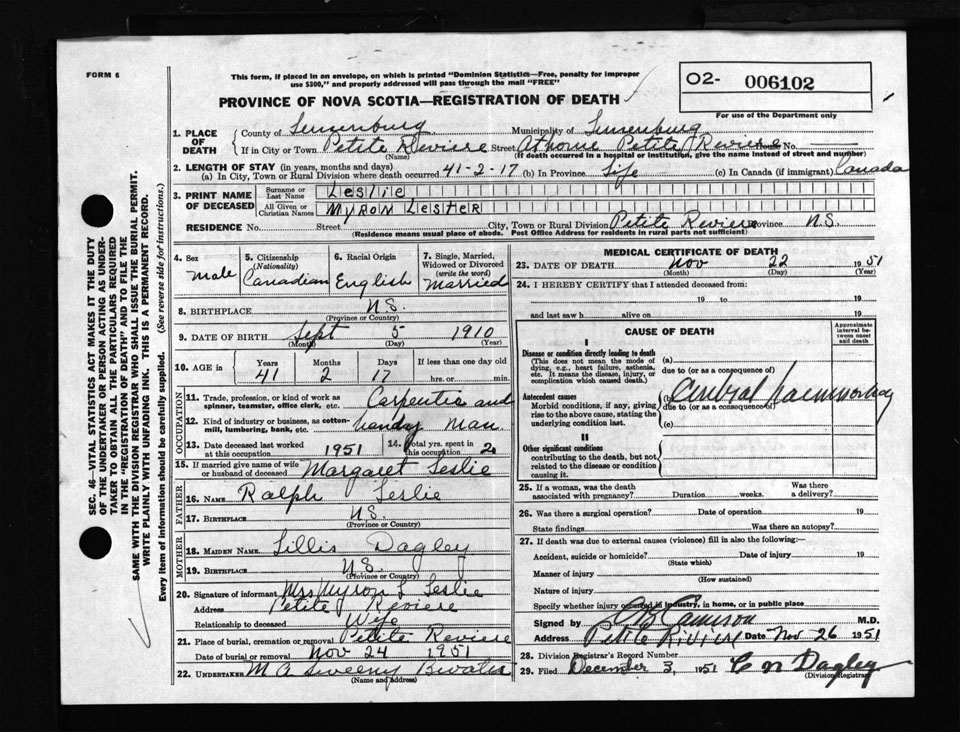 FORM 6
This form, if placed in an envelope, on which is printed "Dominion Statistics—Free, penalty for improper
use $300," and properly addressed will pass through the mail "FREE"
PROVINCE OF NOVA SCOTIA—REGISTRATION OF DEATH
O2- 006102
For use of the Department only
1. PLACE OF DEATH
County of Lunenburg Municipality of Lunenburg
If in City or Town Petite Reviere Street At home Petite Reviere House No.
(Name) (If death occurred in a hospital or institution, give the name instead of street and number)
2. LENGTH OF STAY (in years, months and days)
(a) In City, Town or Rural Division where death occurred 41-2-17 (b) In Province Life (c) In Canada (if immigrant) Canada
3. PRINT NAME OF DECEASED
Surname or Last Name LESLIE
All Given or Christian Names MYRON LESTER
RESIDENCE No. Street City, Town or Rural Division Petite Reviere Province N.S.
(Residence means usual place of abode. Post Office Address for residents in rural parts not sufficient)
4. Sex male
5. Citizenship (Nationality) Canadian
6. Racial Origin English
7. Single, Married, Widowed or Divorced (write the word) Married
8. BIRTHPLACE N.S.
(Province or Country)
9. DATE OF BIRTH Sept 5 1910
(Month) (Day) (Year)
10. AGE in Years Months Days If less than one day old
41 2 17 hrs. or min.
OCCUPATION
11. Trade, profession, or kind of work as spinner, teamster, office clerk, etc. Carpentia and
12. Kind of industry or business, as cotton-mill, lumbering, bank, etc. handy man
13. Date deceased last worked at this occupation 1951
14. Total yrs. spent in this occupation 2
15. If married give name of wife or husband of deceased Margaret Leslie
FATHER
16. NAME Ralph Leslie
17. BIRTHPLACE N.S.
(Province or Country)
MOTHER
18. MAIDEN NAME Lillis Dagley
19. BIRTHPLACE N.S.
(Province or Country)
20. Signature of informant Mrs Myron L Leslie
Address Petite Reviere
Relationship to deceased Wife
21. Place of burial, cremation or removal Petite Reviere
Date of burial or removal Nov 24 1951
22. UNDERTAKER M A Sweeny Bwater
(Name and Address)
MEDICAL CERTIFICATE OF DEATH
23. DATE OF DEATH Nov 22 1951
(Month) (Day) (Year)
24. I HEREBY CERTIFY that I attended deceased from:
19 to 19
and last saw h alive on 19
CAUSE OF DEATH
Approximate interval between onset and death
I
Disease or condition directly leading to death (a)
(This does not mean the mode of dying, e.g., heart failure, asthenia, etc. It means the disease, injury, or complication which caused death.)
due to (or as a consequence of)
Antecedent causes (b) Cerebral haemmorhag
Morbid conditions, if any, giving rise to the above cause, stating the underlying condition last.
due to (or as a consequence of)
(c)
II
Other significant conditions
contributing to the death, but not related to the disease or condition causing it.
25. If a woman, was the death associated with pregnancy? Duration weeks. Was there a delivery?
26. Was there a surgical operation? Date of operation 19
State findings Was there an autopsy?
27. If death was due to external causes (violence) fill in also the following:—
Accident, suicide or homicide? Date of injury 19
(State which)
Manner of injury
(How sustained)
Nature of injury
Specify whether injury occurred in industry, in home, or in public place
Signed by Cameron M.D.
Address Petite Riviere Date Nov 26 1951
28. Division Registrar's Record Number
29. Filed December 3, 1951 C N Dagley
(Division Registrar)
SEC. 46—VITAL STATISTICS ACT MAKES IT THE DUTY
OF THE UNDERTAKER OR PERSON ACTING AS UNDER-
TAKER TO OBTAIN ALL THE PARTICULARS REQUIRED
IN THE "REGISTRATION OF DEATH" AND TO FILE THE
SAME WITH THE DIVISION REGISTRAR WHO SHALL ISSUE THE BURIAL PERMIT.
WRITE PLAINLY WITH UNFADING INK. THIS IS A PERMANENT RECORD.
Every item of information should be carefully supplied. (See reverse side for instructions.)